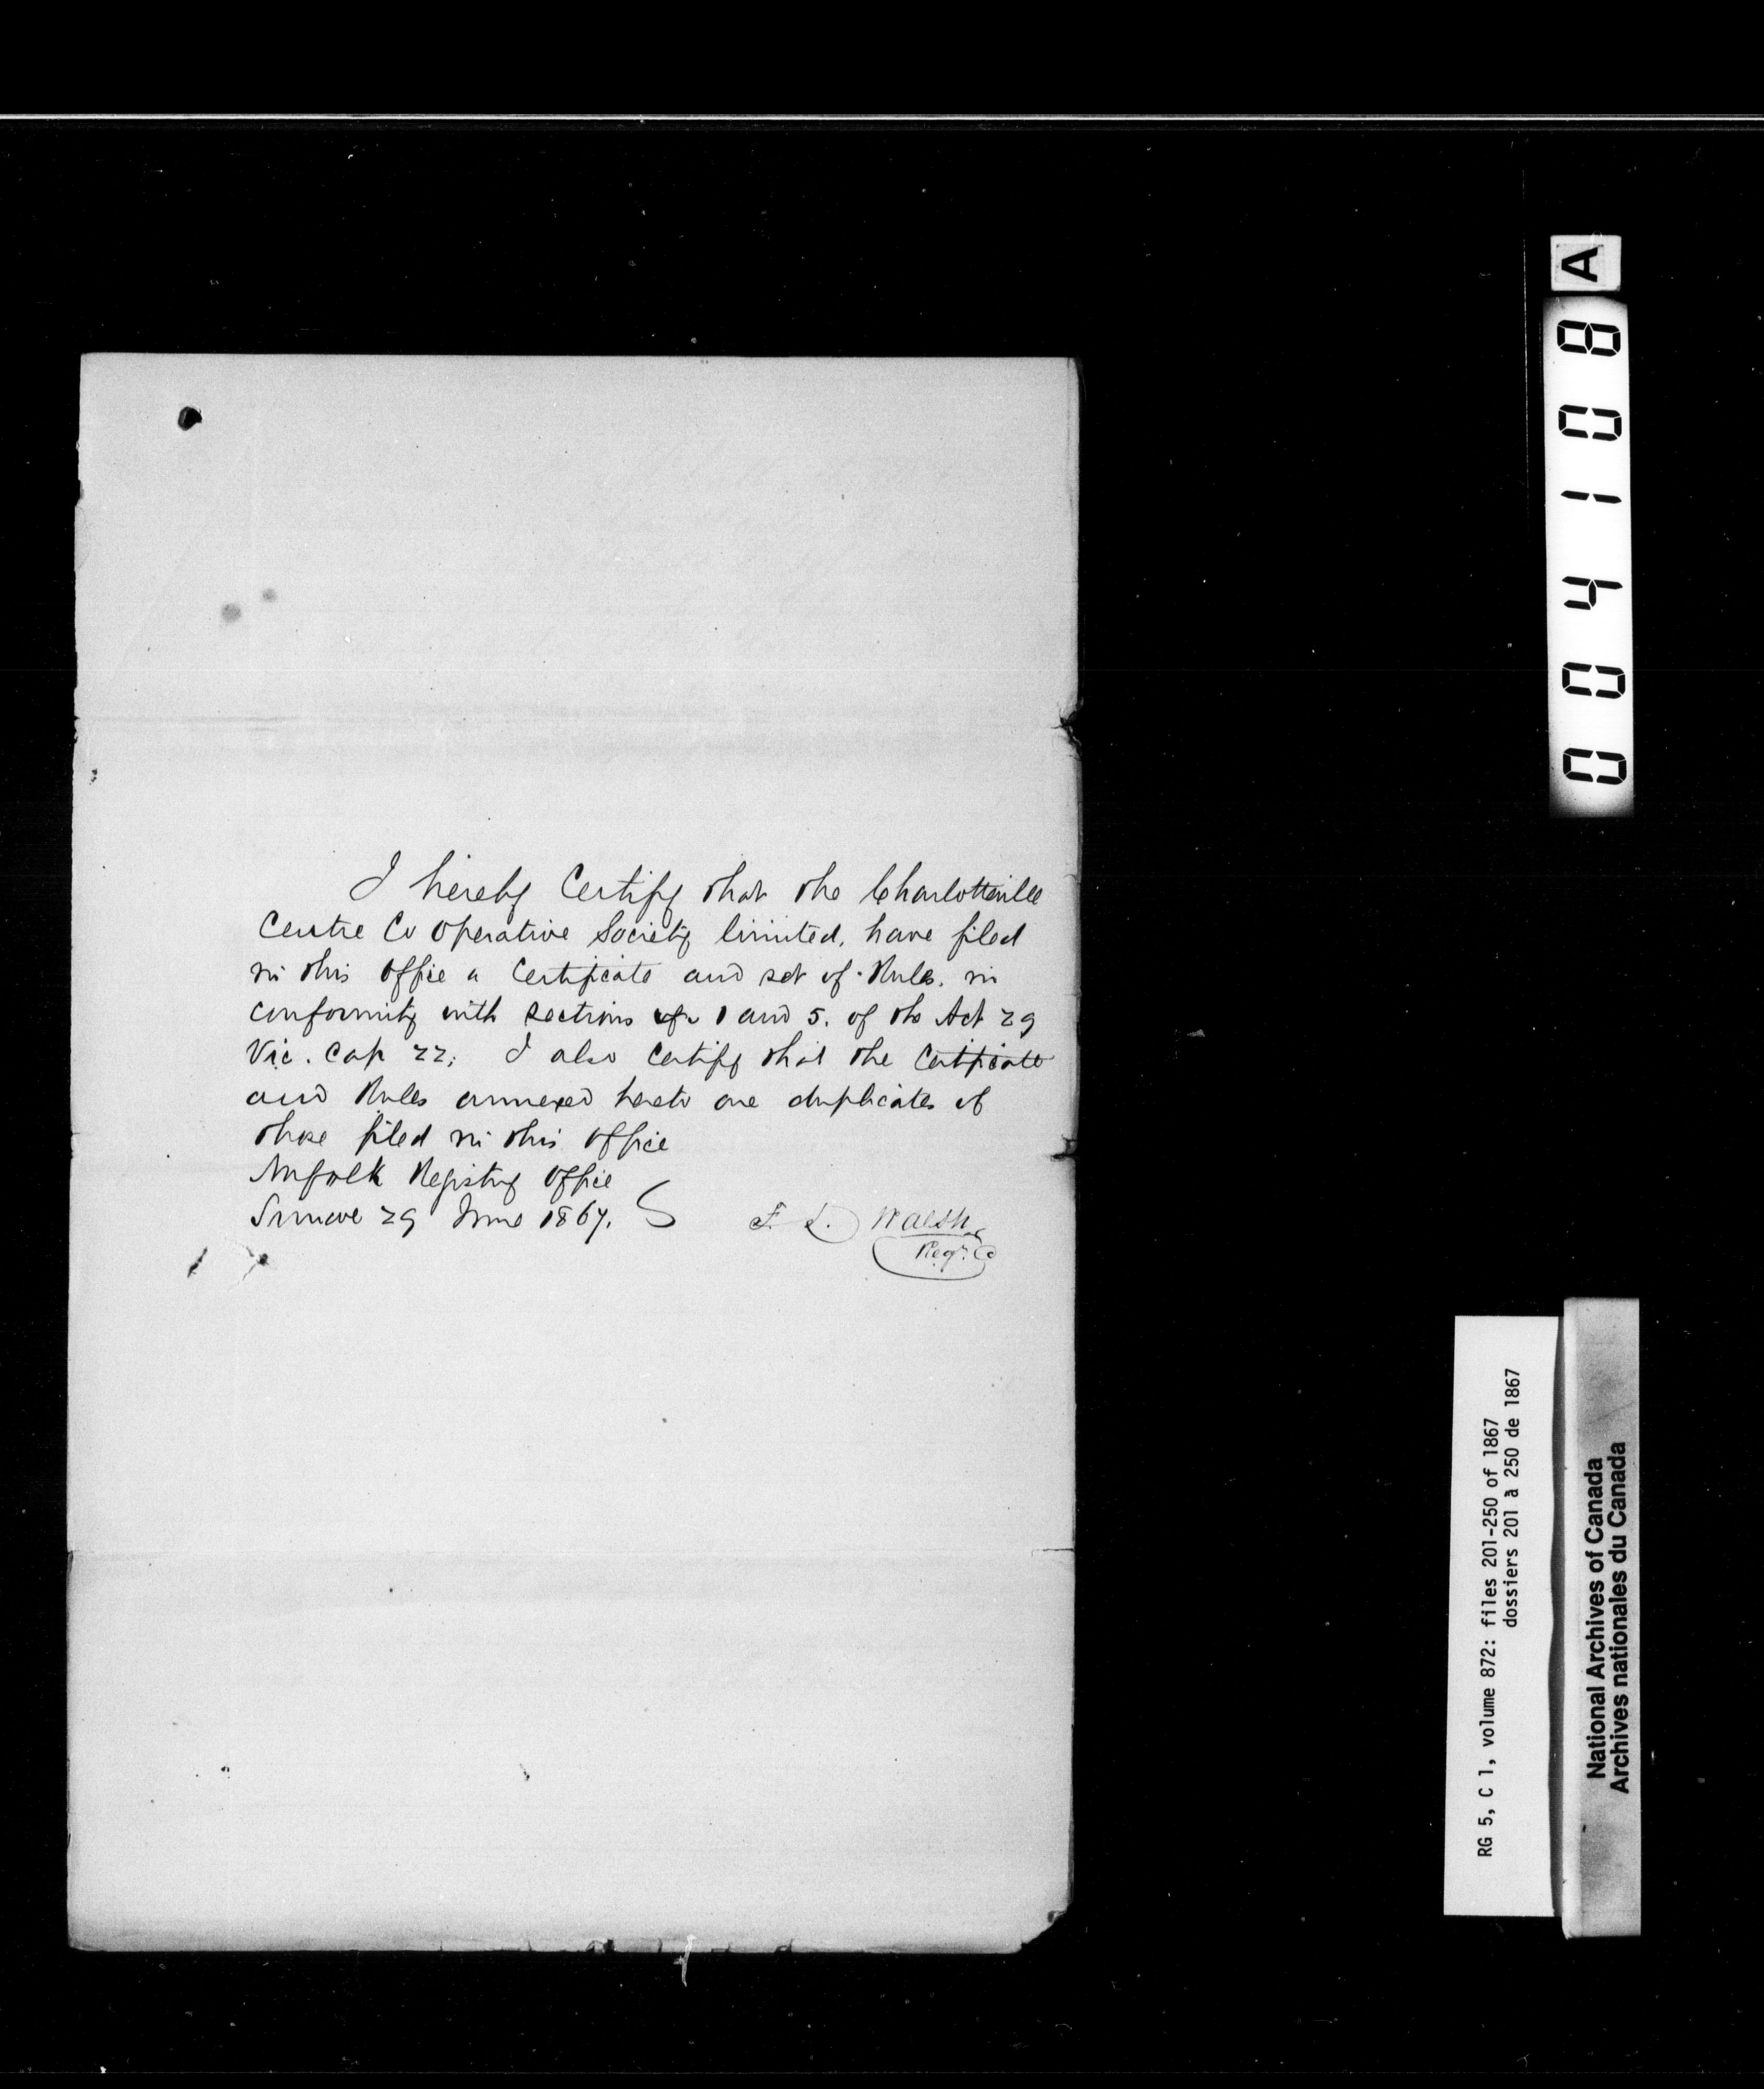 I hereby Certify that the Charlotteville
Centre Co Operative Society limited, have filed
in this Office a Certificate and set of Rules, in
conformity with sections of 1 and 5. of the Act 29
Vic. Cap 22; I also certify that the Certificate
and Rules annexed hereto are duplicates of
those filed in this Office
Norfolk Registry Office
Simcoe 29 June 1867.
F. L. Walsh
Regr. Co
A
004108
RG 5, C 1, volume 872: files 201-250 of 1867
dossiers 201 à 250 de 1867
National Archives of Canada
Archives nationales du Canada